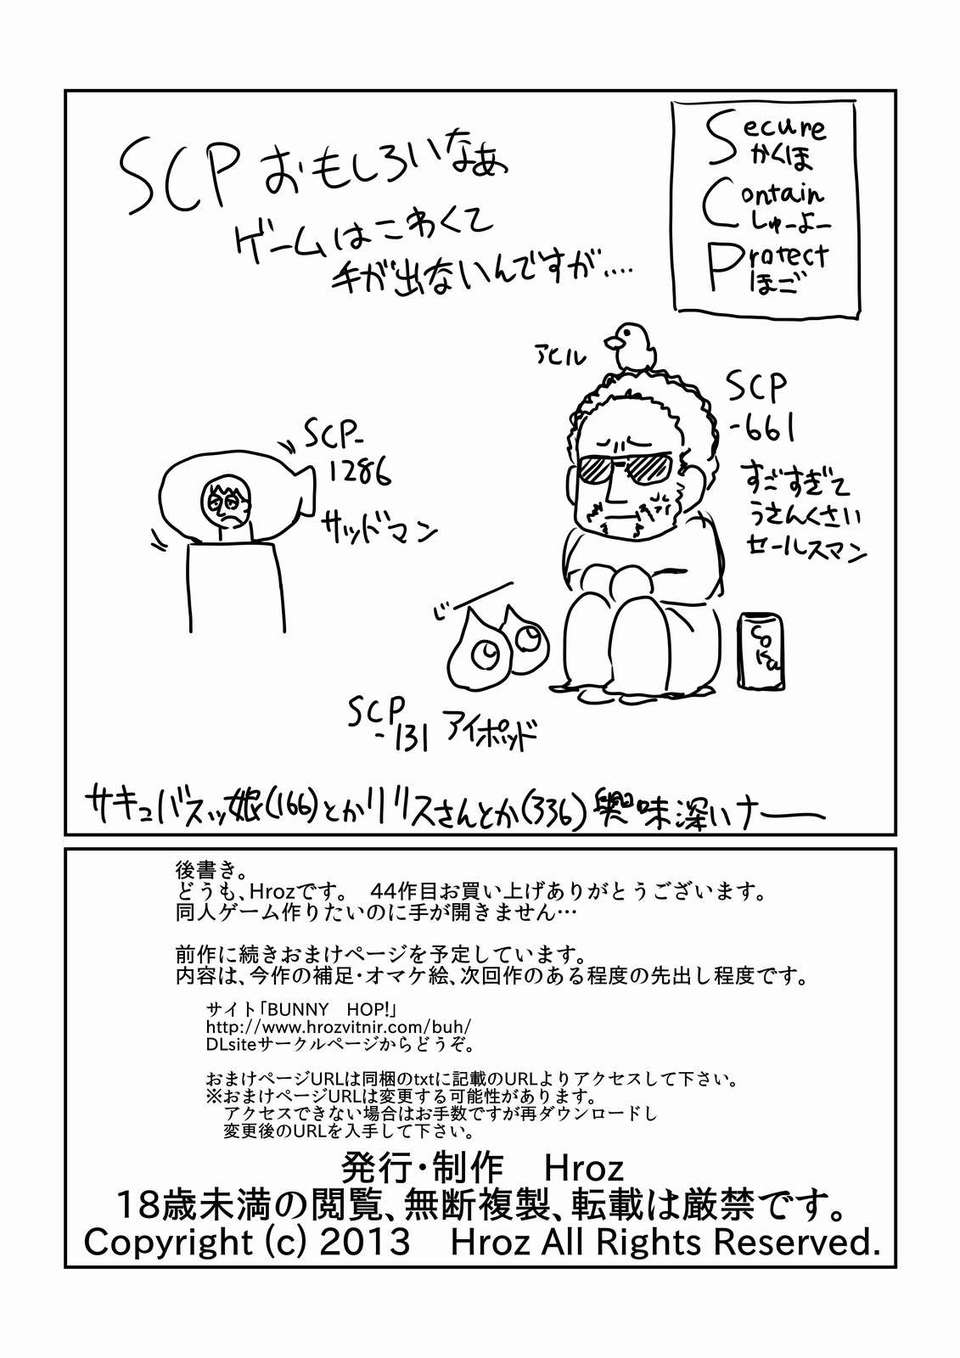 SCPおもしろいなぁ
ゲームはこわくて
手が出ないんですが....
Secure
かくほ
Contain
しゅーよー
Protect
ほご
アヒル
SCP
-661
すごすぎて
うさんくさい
セールスマン
SCP-
1286
サッドマン
じ
Coka
SCP
-131 アイポッド
サキュバスッ娘(166)とかリリスさんとか(336)興味深いナー
後書き。
どうも、Hrozです。　44作目お買い上げありがとうございます。
同人ゲーム作りたいのに手が開きません…
前作に続きおまけページを予定しています。
内容は、今作の補足・オマケ絵、次回作のある程度の先出し程度です。
サイト「BUNNY　HOP!」
http://www.hrozvitnir.com/buh/
DLsiteサークルページからどうぞ。
おまけページURLは同梱のtxtに記載のURLよりアクセスして下さい。
※おまけページURLは変更する可能性があります。
アクセスできない場合はお手数ですが再ダウンロードし
変更後のURLを入手して下さい。
発行・制作　Hroz
18歳未満の閲覧、無断複製、転載は厳禁です。
Copyright (c) 2013　Hroz All Rights Reserved.